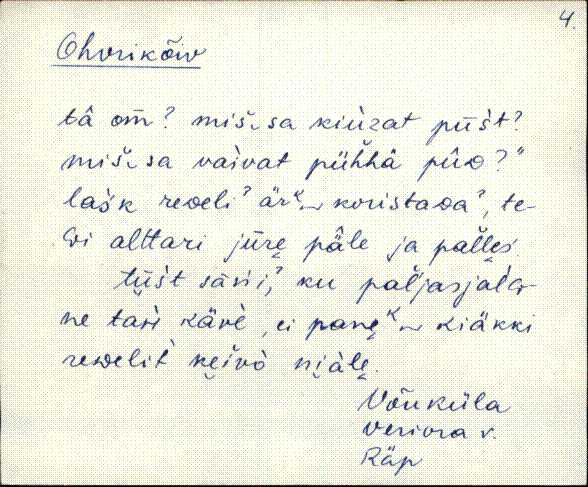 4.
Ohvrikõiv
tâ om̄? miš sa kiùzat pūšt?
miš sa vaìvat pühhâ pûD?"
lašk redeli? ärᴷ koristaDa?, te-
Gi alttari jūre päle ja palleš.
tūšt sāṅi?, ku pal'jasjalG-
ne tari kävè, ei paneᴷ kiäkki
redelit keìvò niàle.
Võuküla
Veriora v.
Räp